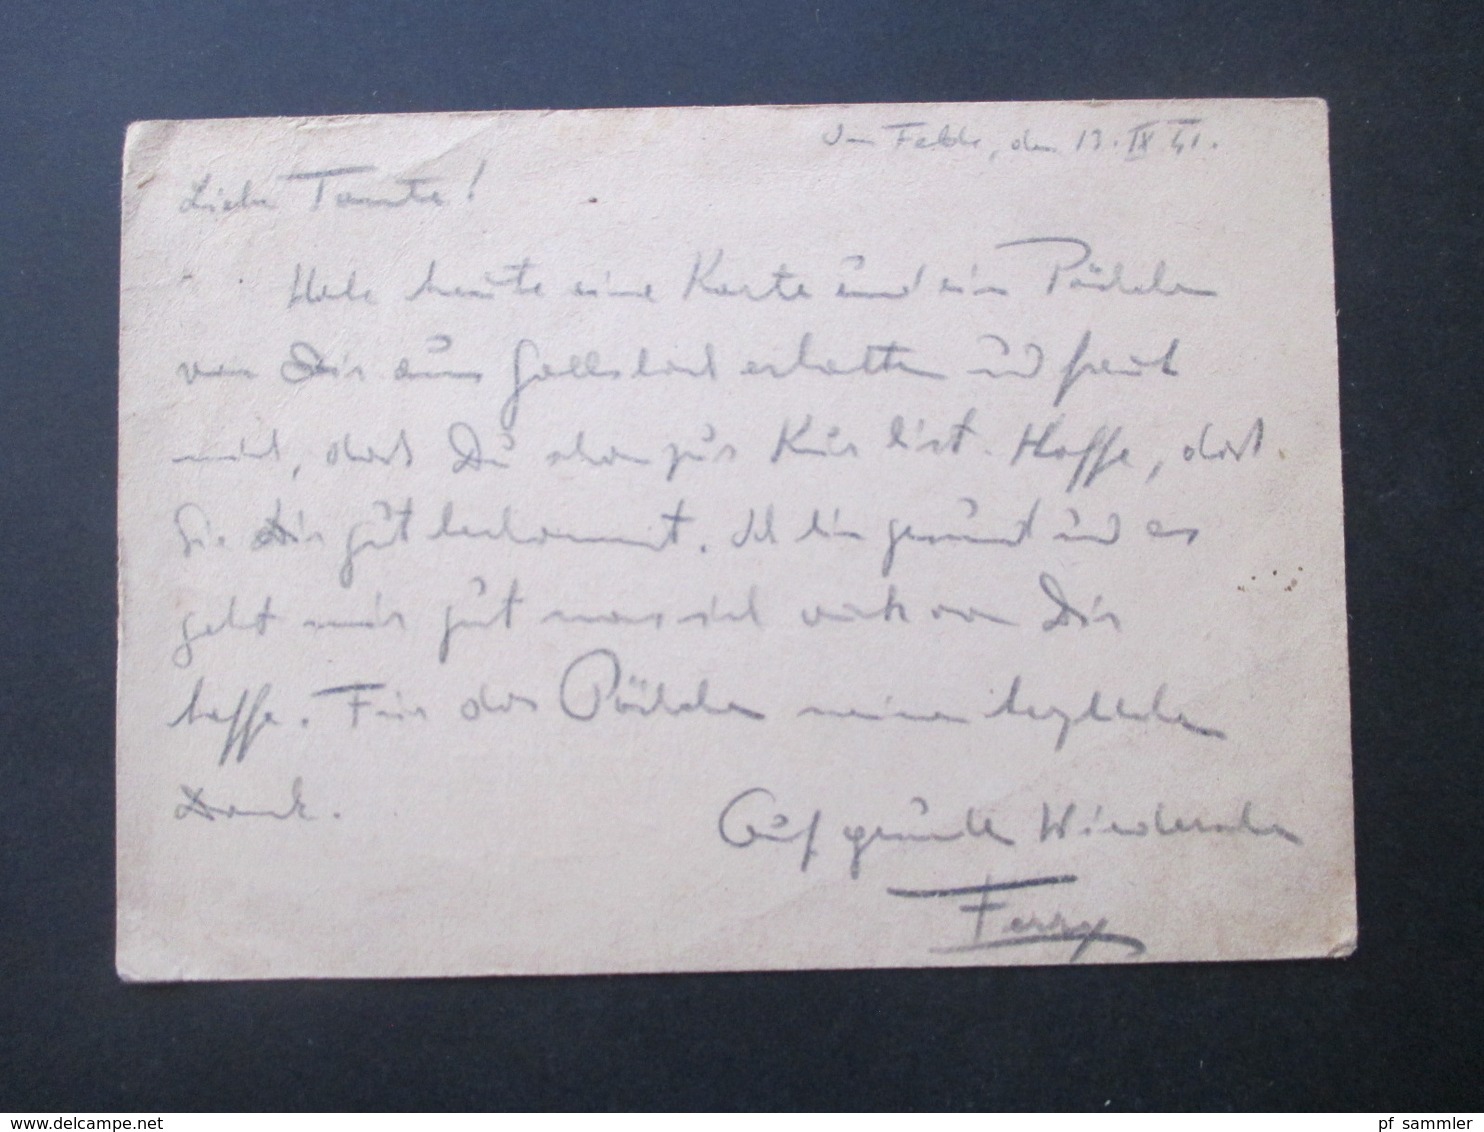 Im Felde, den 13. IX 41.
Liebe Tante!
Habe heute eine Karte und ein Päckchen
von Dir aus erhalten und freut
mich, dass Du schon zur Kur bist. Hoffe, dass
Sie Dir gut bekommt. Ich bin gesund und es
geht mir gut was ich auch von Dir
hoffe. Für das Päckchen meinen herzlichen
Dank.
Auf gesundes Wiedersehen
Ferry
© www.delcampe.net
pf_sammler